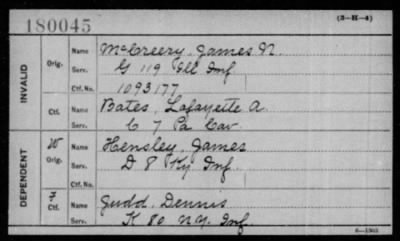 180045
(3-H-4)
INVALID
Orig.
Name McCreery, James N.
Serv. G 119 Ill Inf
Ctf. No. 1093177
Ctf.
Name Bates, Lafayette A.
Serv. C 7 Pa Cav
DEPENDENT
W
Orig.
Name Hensley, James
Serv. D 8 Ky Inf.
Ctf. No.
F
Ctf.
Name Judd, Dennis
Serv. K 80 N.Y. Inf.
6-1303